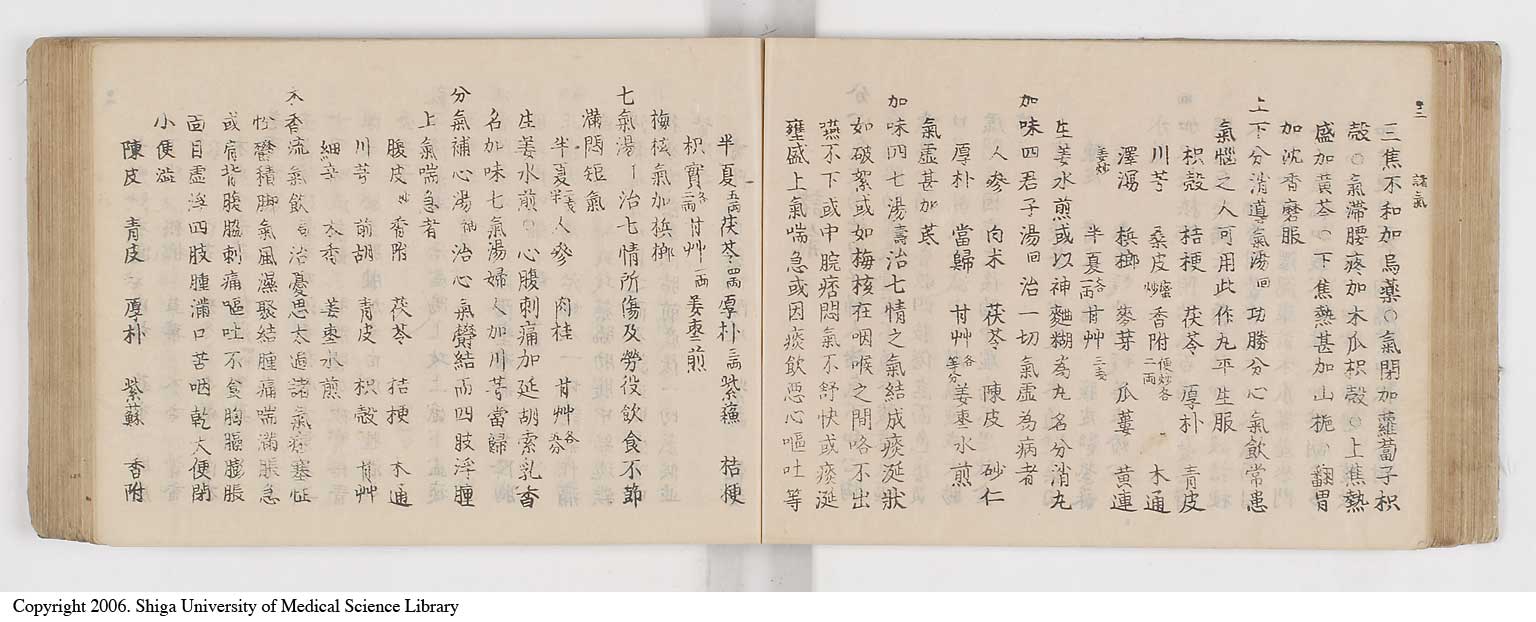 十三　諸氣
三焦不和加烏藥○氣閉加蘿蔔子枳
殼○氣滯腰疼加木瓜枳殼○上焦熱
盛加黃芩○下焦熱甚加山梔　翻胃
加沈香磨服
上下分消導氣湯回功勝分心氣飲常患
氣惱之人可用此作丸平生服
枳殼　桔梗　茯苓　厚朴　青皮
川芎　桑皮蜜炒　香附便炒各二両　木通
澤瀉　梹榔　麥芽　瓜蔞　黃連
姜炒　半夏各一両　甘艸三戔
生姜水煎或以神麯糊為丸名分消丸
加味四君子湯回治一切氣虛為病者
人參　白朮　茯苓　陳皮　砂仁
厚朴　當歸　甘艸各等分　姜枣水煎
氣虛甚加芪
加味四七湯壽治七情之氣結成痰涎狀
如破絮或如梅核在咽喉之間咯不出
嚥不下或中脘痞悶氣不舒快或痰涎
壅盛上氣喘急或因痰飲惡心嘔吐等
半夏五両　茯苓四両　厚朴三両　紫蘓　桔梗
枳實各二両　甘艸一両　姜枣煎
梅核氣加梹榔
七氣湯ー治七情所傷及勞役飲食不節
滿悶短氣
半夏三戔半　人參　肉桂　甘艸各柒分
生姜水煎○心腹刺痛加延胡索乳香
名加味七氣湯婦人加川芎當歸
分氣補心湯神治心氣鬱結而四肢浮腫
上氣喘急者
腹皮炒　香附　茯苓　桔梗　木通
川芎　前胡　青皮　枳殼　甘艸
細辛　木香　姜枣水煎
木香流氣飲回治憂思太過諸氣痞塞怔
忪鬱積脚氣風濕聚結腫痛喘滿脹急
或肩背腹脇刺痛嘔吐不食胸膈膨脹
面目虛浮四肢腫滿口苦咽乾大便閉
小便澁
陳皮　青皮　厚朴　紫蘇　香附
Copyright 2006. Shiga University of Medical Science Library